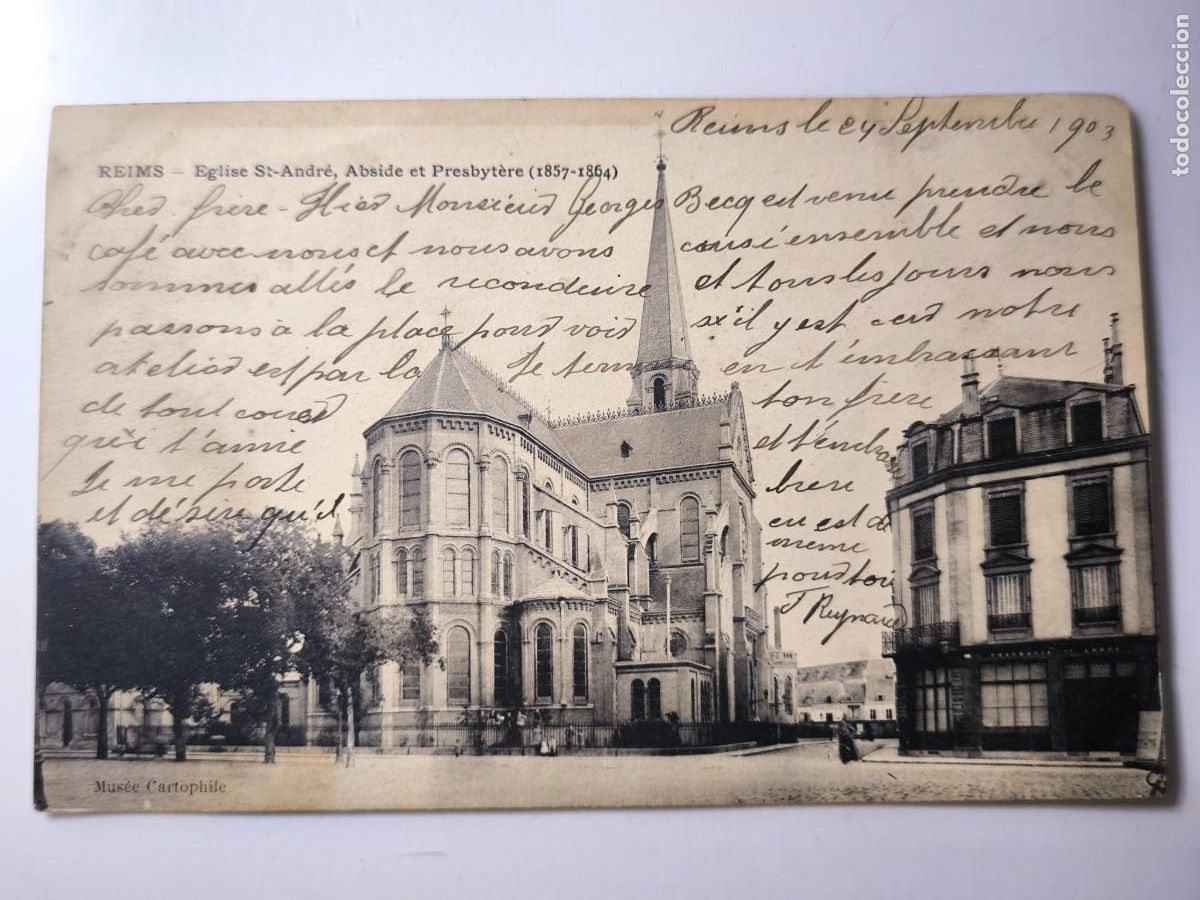 Reims le 24 Septembre 1903
REIMS — Eglise St-André, Abside et Presbytère (1857-1864)
Cher frère - Hier Monsieur Georges Becq est venu prendre le
café avec nous et nous avons causé ensemble et nous
sommes allés le reconduire et tous les jours nous
passons à la place pour voir s'il y est car notre
atelier est par la Je termine en t'embrassant
de tout coeur ton frère
qui t'aime et t'embrasse
Je me porte bien
et désire qu'il en est de
meme
pour toi
J Reynard
Musée Cartophile
todocoleccion